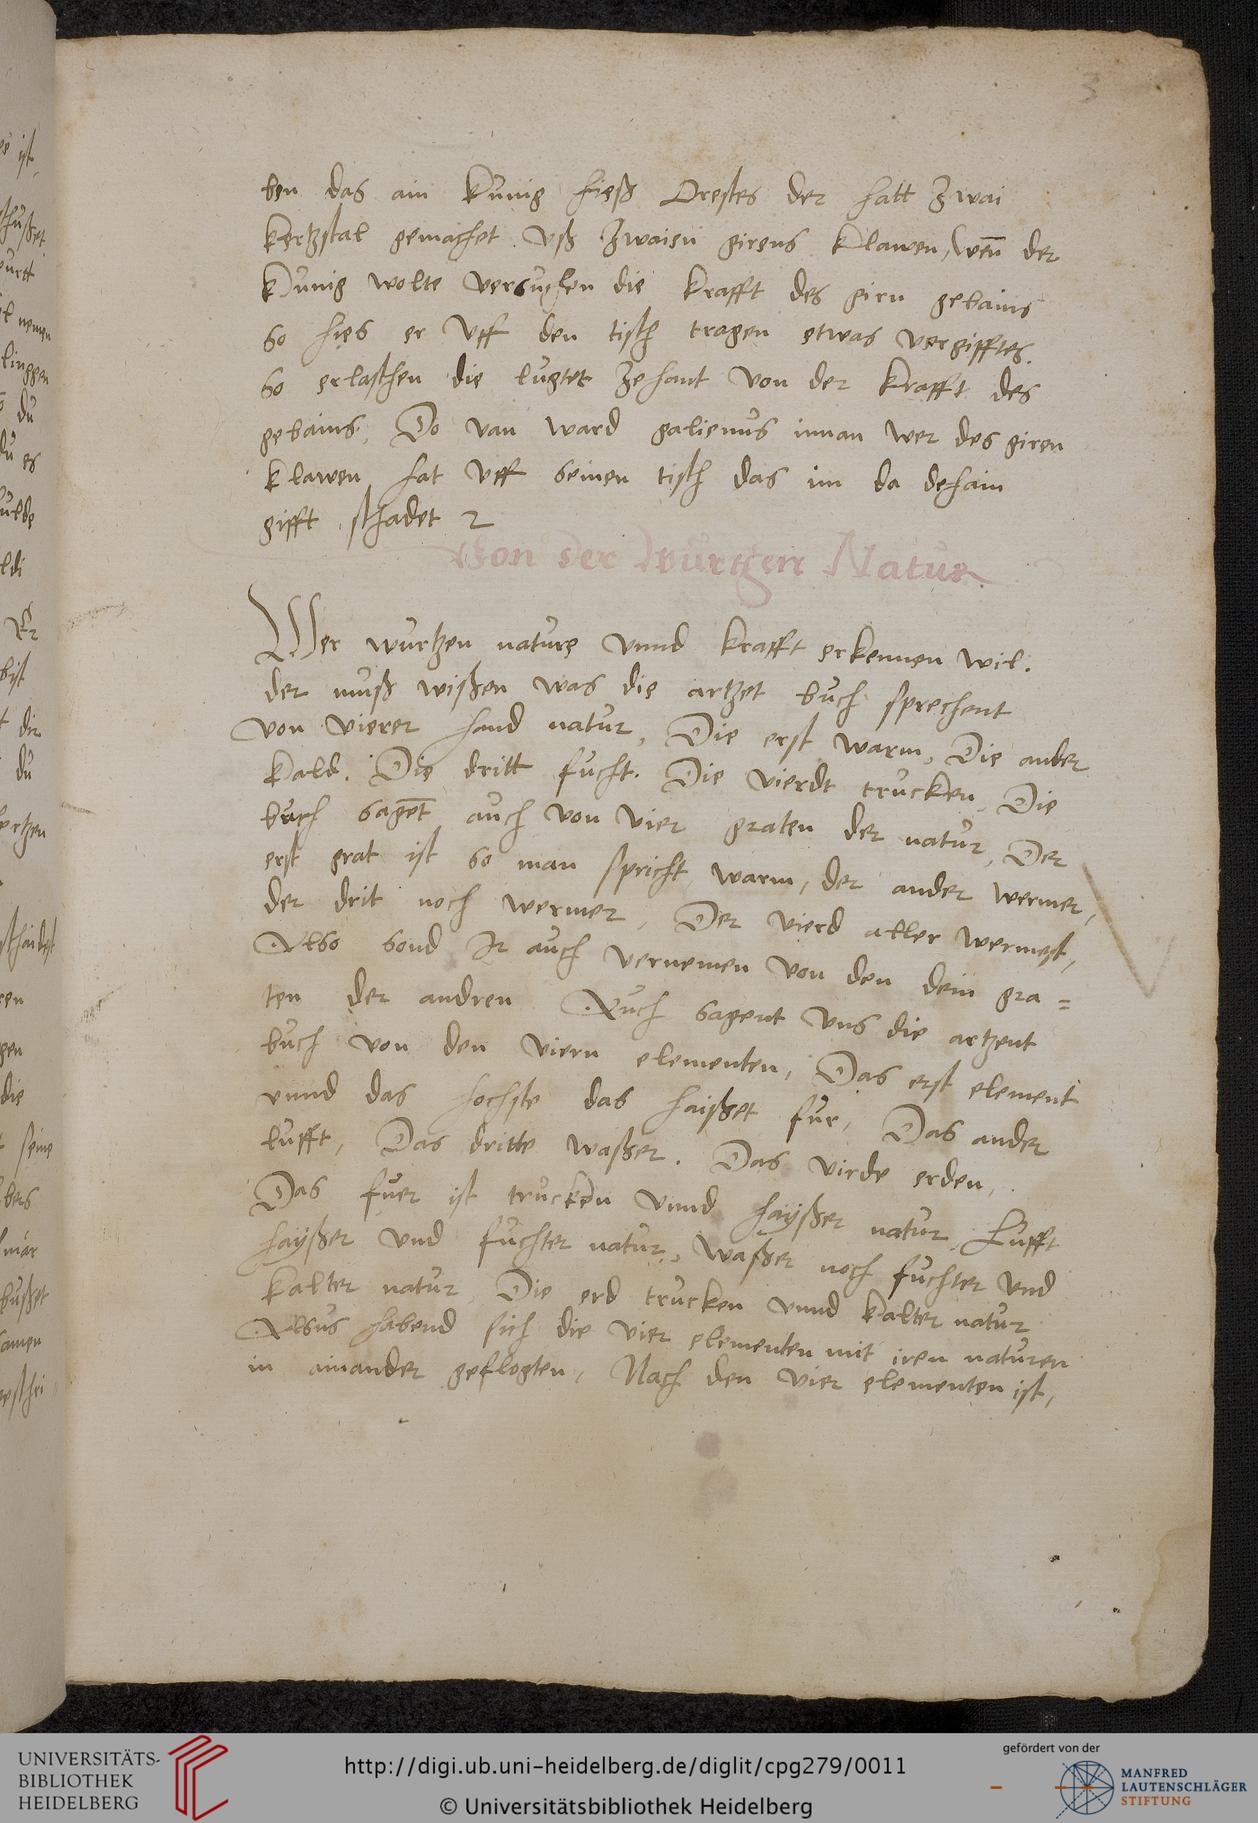 3
ben das ain Kunig hieß Orestes der hatt zwai
kertzstal gemachet vß zwaien girens klawen, wen̄ der
Kunig wolte versuchen die krafft des giren gebains
so hies er vff den tisch tragen etwas vergifftes.
so erlaschen die liechter zehant von der krafft des
gebains, Do van ward galienus innan wer des giren
klawen hat vff seinen tisch das im da dehain
gifft schadet
Von der Wurtzen Natur
Wer wurtzen nature vnnd krafft erkennen wil.
der muß wißen was die artzet buch sprechent
von vierer hand natur, Die erst warm, Die ander
kald. Die dritt fucht. Die vierdt trucken, Die
buch sagēt auch von vier graten der natur, Der
erst grat ist so man spricht warm, der ander wermer,
der drit noch wermer, Der vierd aller wermest,
Also sond ir auch vernemen von den drin gra=
ten der andren Auch sagent vns die artzent
buch von den viern elementen, Das erst element
vnnd das hochste das haißet fur, Das ander
lufft, Das dritte waßer. Das virde erden,
Das fuer ist trucken vnnd haÿßer natur Lufft
haÿßer vnd fuchter natur, Waßer noch fuchter vnd
kalter natur Die erd trucken vnnd kalter natur
Alsus habend sich die vier elementen mit iren naturen
in ainander geflogten, Nach den vier elementen ist,
UNIVERSITÄTS-
BIBLIOTHEK
HEIDELBERG
http://digi.ub.uni-heidelberg.de/diglit/cpg279/0011
© Universitätsbibliothek Heidelberg
gefördert von der
MANFRED
LAUTENSCHLÄGER
STIFTUNG